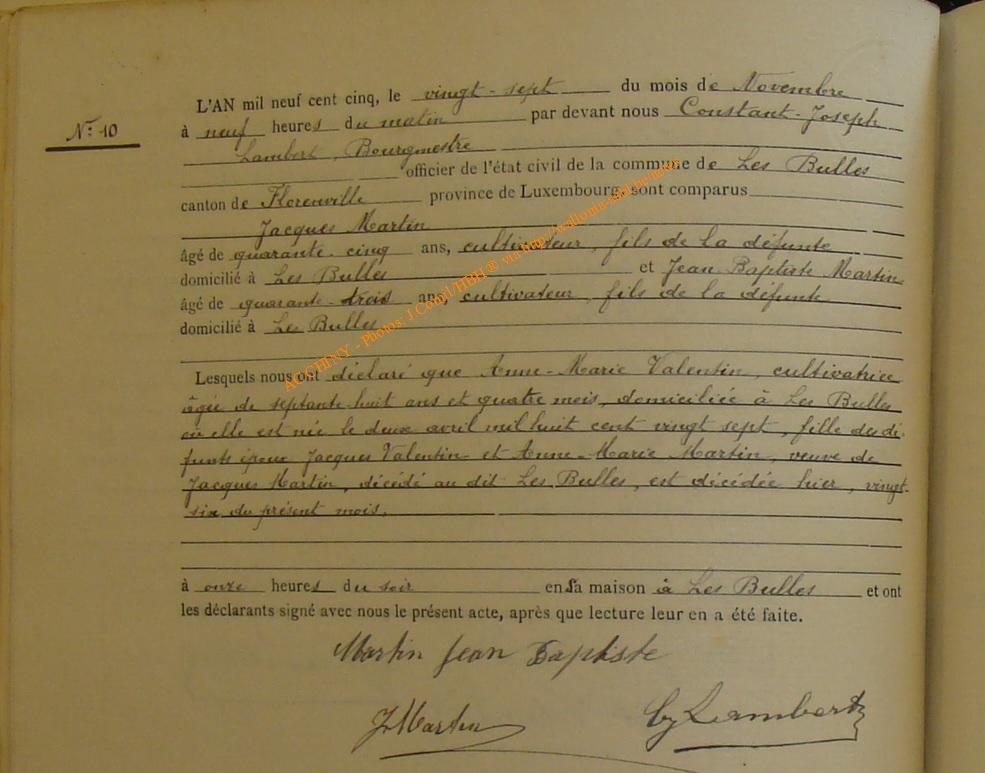 L'AN mil neuf cent cinq, le vingt-sept du mois de Novembre
N° 10
à neuf heures du matin par devant nous Constant-Joseph
Lambert, Bourgmestre
officier de l'état civil de la commune de Les Bulles
canton de Florenville province de Luxembourg, sont comparus
Jacques Martin
âgé de quarante-cinq ans, cultivateur, fils de la défunte
domicilié à Les Bulles et Jean Baptiste Martin
âgé de quarante-trois ans cultivateur, fils de la défunte
domicilié à Les Bulles
Lesquels nous ont déclaré que Anne-Marie Valentin, cultivatrice
âgée de septante-huit ans et quatre mois, domiciliée à Les Bulles
où elle est née le deux avril mil huit cent vingt sept, fille des dé-
funts époux Jacques Valentin et Anne-Marie Martin, veuve de
Jacques Martin, décédé au dit Les Bulles, est décédée hier, vingt-
six du présent mois.
à onze heures du soir en sa maison à Les Bulles et ont
les déclarants signé avec nous le présent acte, après que lecture leur en a été faite.
Martin Jean Baptiste
J Martin
Lambert
ACCHINY - Photos: J Collil/HBH ® via http://wallonia-